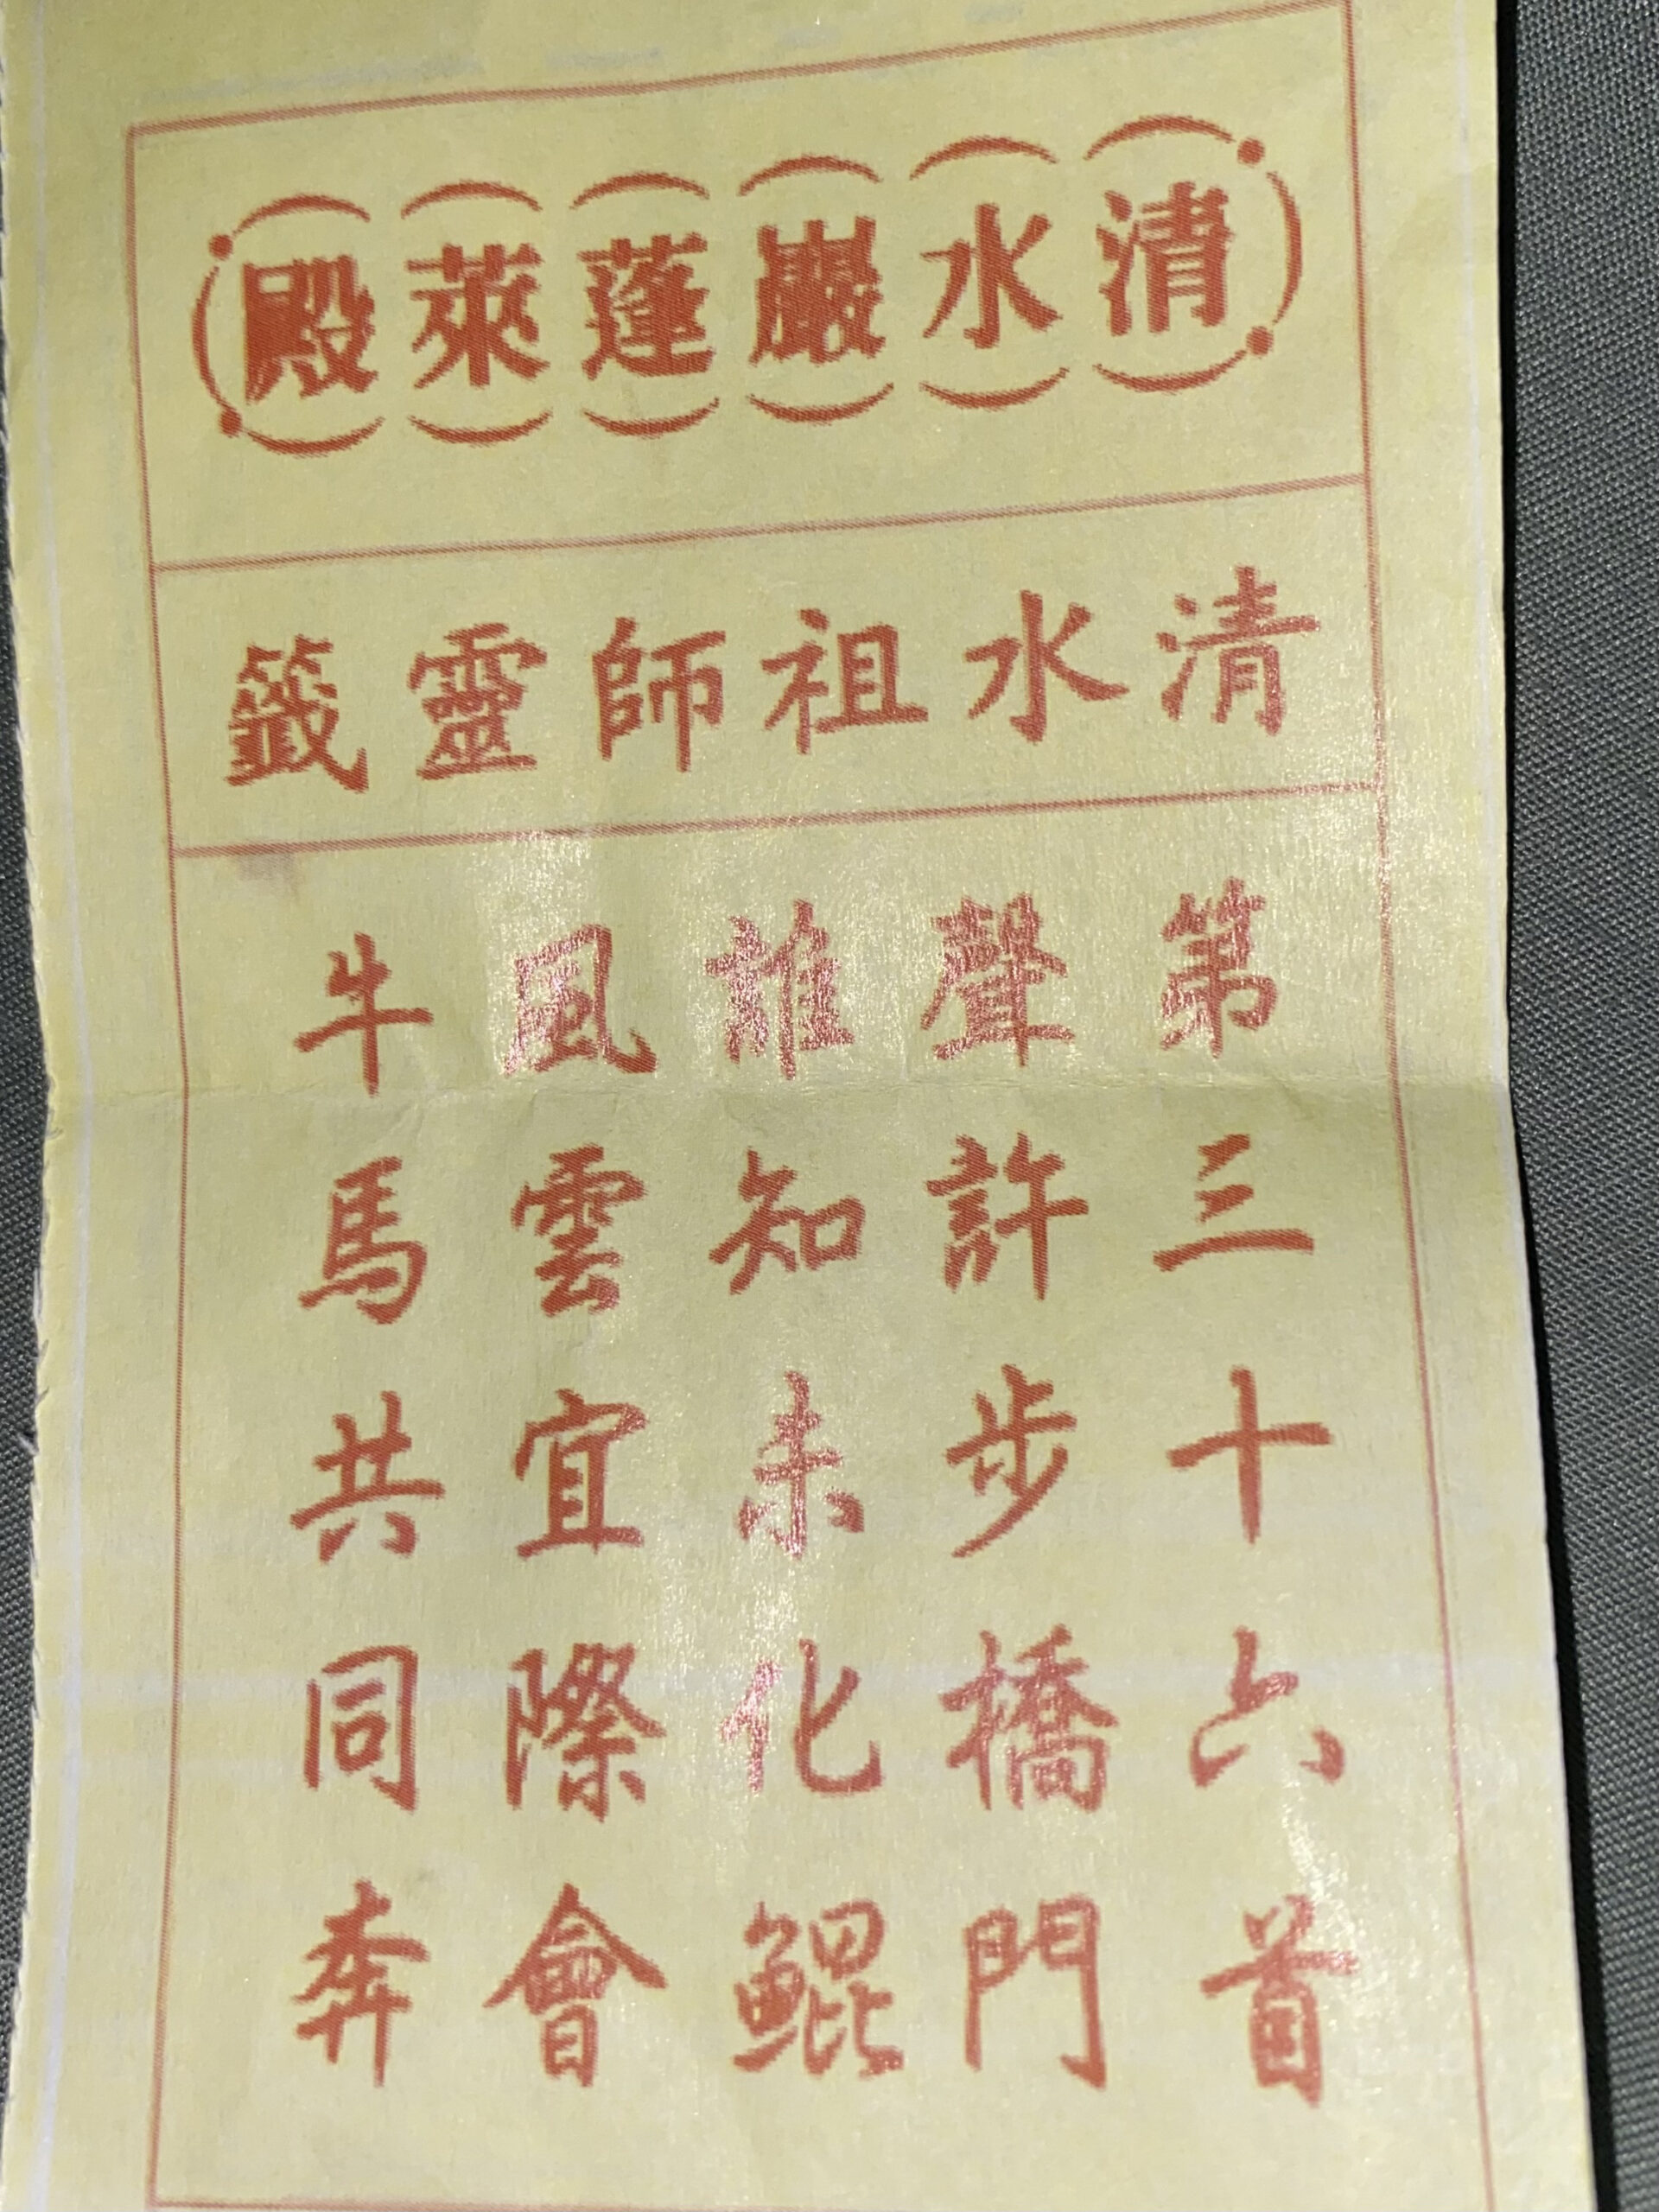 清水巖蓬萊殿
清水祖師靈籤
第三十六首
聲許步橋門
誰知未化鯤
風雲宜際會
牛馬共同奔